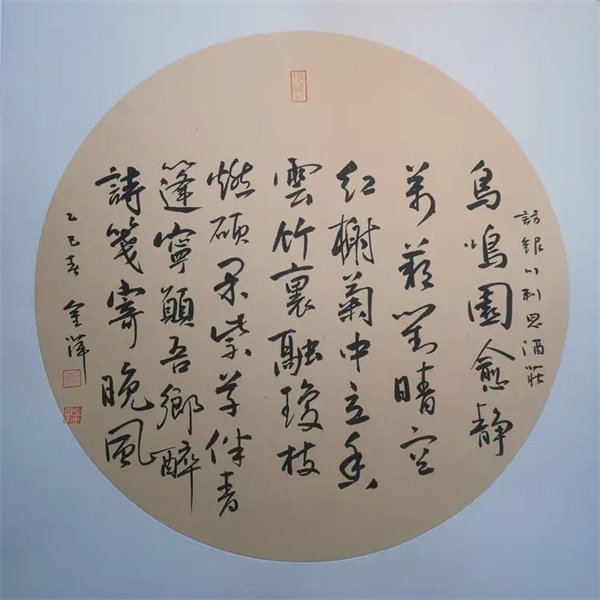 訪銀川利思酒莊
鳥鳴園愈靜
萬對晴空
紅榭菊中立香
雲竹裏融瓊枝
燃碩果紫草伴青
篷寧願吾鄉醉
詩箋寄晚風
乙巳春 金